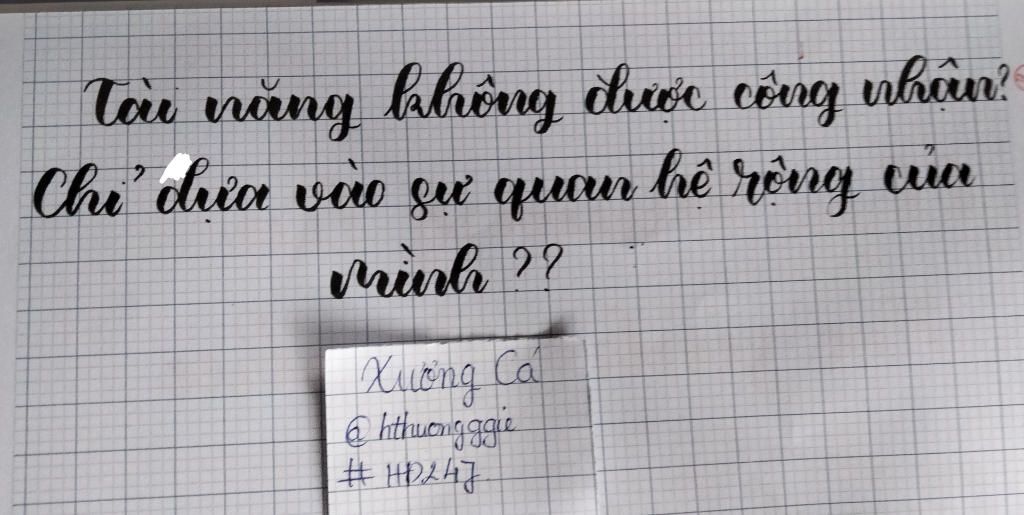 Tài năng không được công nhận?
Chỉ dựa vào sự quan hệ rộng của
mình ??
Xương Cá
@hthuongggie
# HD247